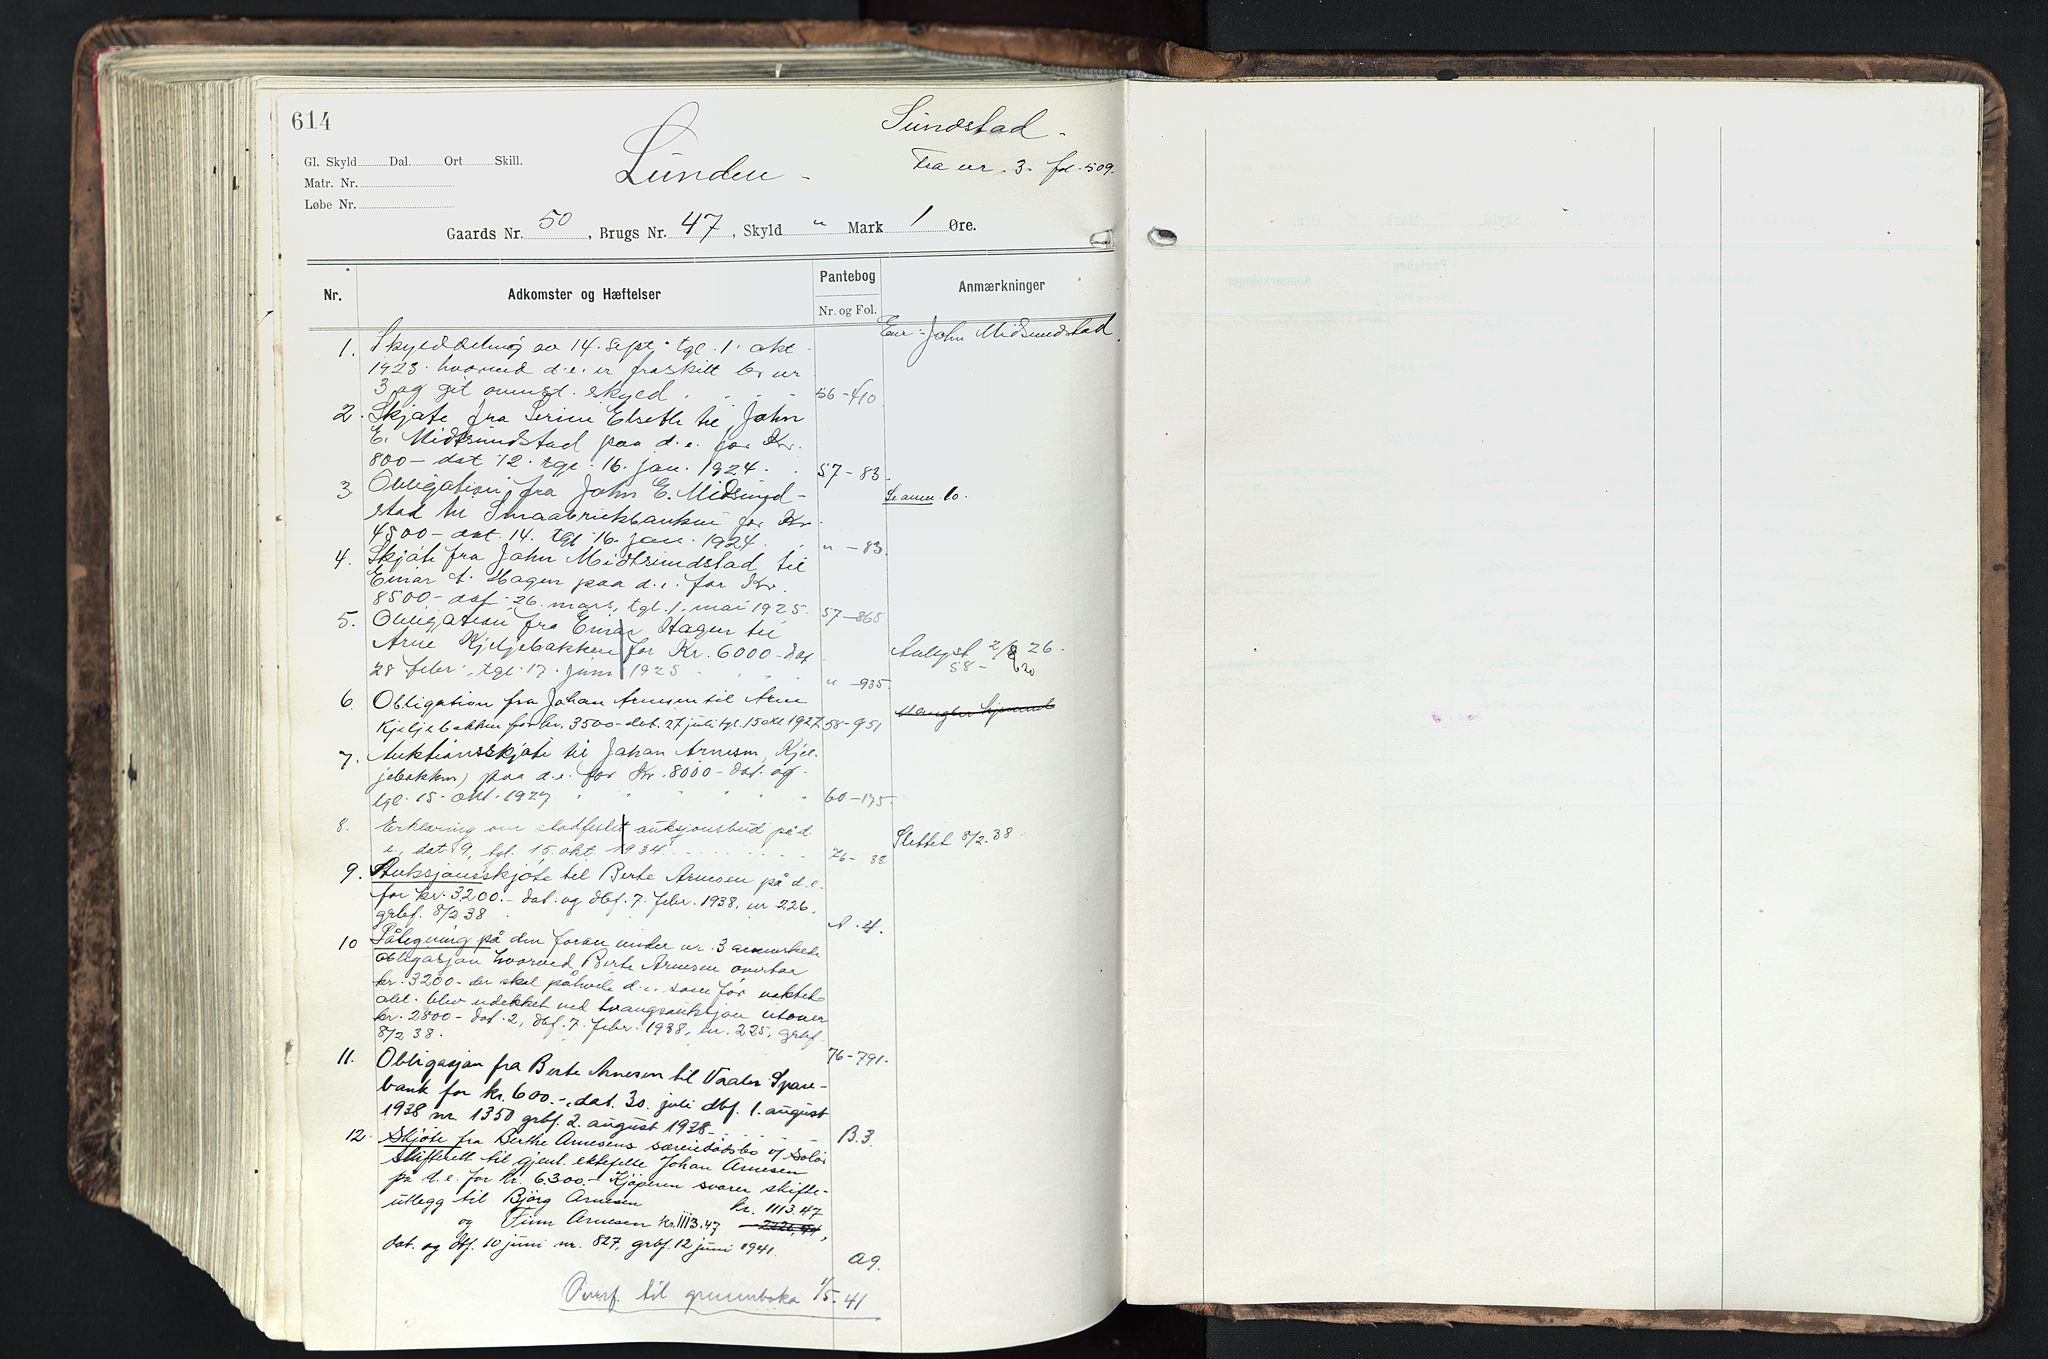 614
Sundstad -
Lunden -
Fra nr. 3. fol. 509.
Gl. Skyld Dal. Ort Skill.
Matr. Nr.
Løbe Nr.
Gaards Nr. 50, Brugs Nr. 47, Skyld " Mark 1 Øre.
Nr. Adkomster og Hæftelser Pantebog Anmærkninger
Nr. og Fol.
Eier: John Midsundstad
1. Skylddeling av 14. sept. tgl. 1. okt
1923. hvorved d.e. er fraskilt br nr
3 og git ovennt. skyld 56-410
2. Skjøte fra Serine Elseth til John
E. Midtsundstad paa d.e. for Kr.
800- dat 12. tgl. 16. jan. 1924. 57-83
3 Obligation fra John E. Midsund- Se anm. 10.
stad til Smaabrukbanken for Kr.
4500- dat. 14. tgl 16. jan. 1924. " -83
4. Skjøte fra John Midtsundstad til
Einar A. Hagen paa d.e. for Kr.
8500- dat. 26. mars, tgl. 1. mai 1925. 57-865
5. Obligation fra Einar Hagen til
Arne Kjeljebakken for Kr. 6000- dat Avlyst 2/8 26.
28 febr., tgl. 17. juni 1925 " -935. 58- 620
6. Obligation fra Johan Arnesen til Arne Mangler hjemmel
Kjeljebakken for kr. 3500- dat. 27 juli tgl. 15 okt 1927 58-951
7. Auktionsskjøte til Johan Arnesen, Kjel-
jebakken) paa d.e. for Kr. 8000- dat. og
tgl. 15. okt. 1927 60-175
8. Erklæring om stadfestet auksjonsbud på d. Slettet 8/2.38
e., dat. 9, tgl. 15. okt. 1934 76- 88
9. Auksjonsskjøte til Berte Arnesen på d.e.
for kr. 3200.- dat. og dbf. 7. febr. 1938, nr 226,
grbf. 8/2 38 A. 4.
10 Påtegning på den foran under nr. 3 anmerkede
obligasjon hvorved Berte Arnesen overtar
kr. 3200- der skal påhvile d.e. som før vaktet
abl. blev udekket ved tvangsauksjon utover
kr. 2800- dat. 2, dbf. 7. febr. 1938, nr. 225, grbf.
8/2 38. 76-791.
11. Obligasjon fra Berte Arnesen til Vaaler Spare-
bank for kr. 600.-, dat. 30. juli dbf. 1. august
1938 nr. 1350 grbf. 2. august 1938- B.3.
12. Skjøte fra Berthe Arnesens særeiedødsbo v/ Solør
skifterett til gjenl. ektefelle Johan Arnesen
på d.e. for kr. 6.300.- Kjøperen svarer skifte-
utlegg til Bjørg Arnesen kr. 1113.47
og Finn Arnesen kr. 1113.47 2226,94,
dat. og dbf. 10 juni nr. 827, grbf. 12 juni 1941. A9.
Overf. til grunnboka 1/5-41